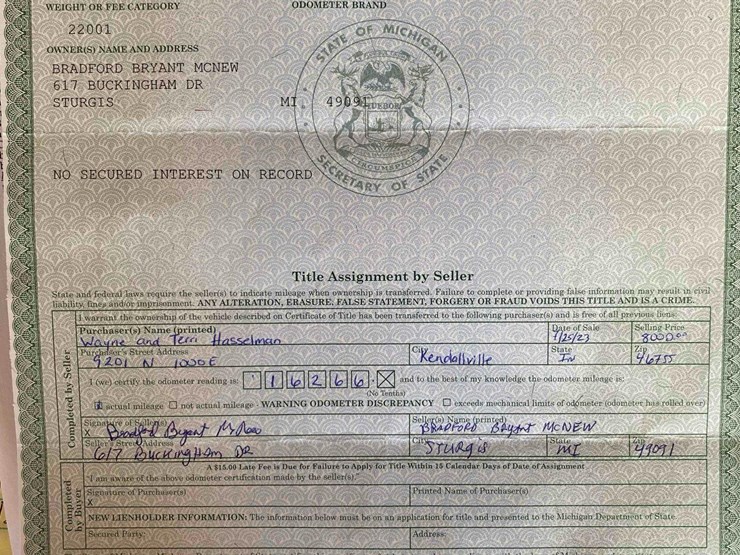 WEIGHT OR FEE CATEGORY
ODOMETER BRAND
22001
OWNER(S) NAME AND ADDRESS
BRADFORD BRYANT MCNEW
617 BUCKINGHAM DR
STURGIS MI 49091
STATE OF MICHIGAN
TUEBOR
CIRCUMSPICE
SECRETARY OF STATE
NO SECURED INTEREST ON RECORD
Title Assignment by Seller
State and federal laws require the seller(s) to indicate mileage when ownership is transferred. Failure to complete or providing false information may result in civil
liability, fines and/or imprisonment. ANY ALTERATION, ERASURE, FALSE STATEMENT, FORGERY OR FRAUD VOIDS THIS TITLE AND IS A CRIME.
I warrant the ownership of the vehicle described on Certificate of Title has been transferred to the following purchaser(s) and is free of all previous liens.
Completed by Seller
Purchaser(s) Name (printed) Date of Sale Selling Price
Wayne and Terri Hasselman 1/25/23 8000.00
Purchaser's Street Address City State Zip
9201 N 1000E Kendallville IN 46755
I (we) certify the odometer reading is: 116266 X and to the best of my knowledge the odometer mileage is:
(No Tenths)
actual mileage not actual mileage - WARNING ODOMETER DISCREPANCY exceeds mechanical limits of odometer (odometer has rolled over)
Signature of Seller(s) Seller(s) Name (printed)
X Bradford Bryant McNew BRADFORD BRYANT MCNEW
Seller's Street Address City State Zip
617 Buckingham DR STURgis MI 49091
A $15.00 Late Fee is Due for Failure to Apply for Title Within 15 Calendar Days of Date of Assignment
Completed by Buyer
"I am aware of the above odometer certification made by the seller(s)."
Signature of Purchaser(s) Printed Name of Purchaser(s)
X
NEW LIENHOLDER INFORMATION: The information below must be on an application for title and presented to the Michigan Department of State
Secured Party: Address: